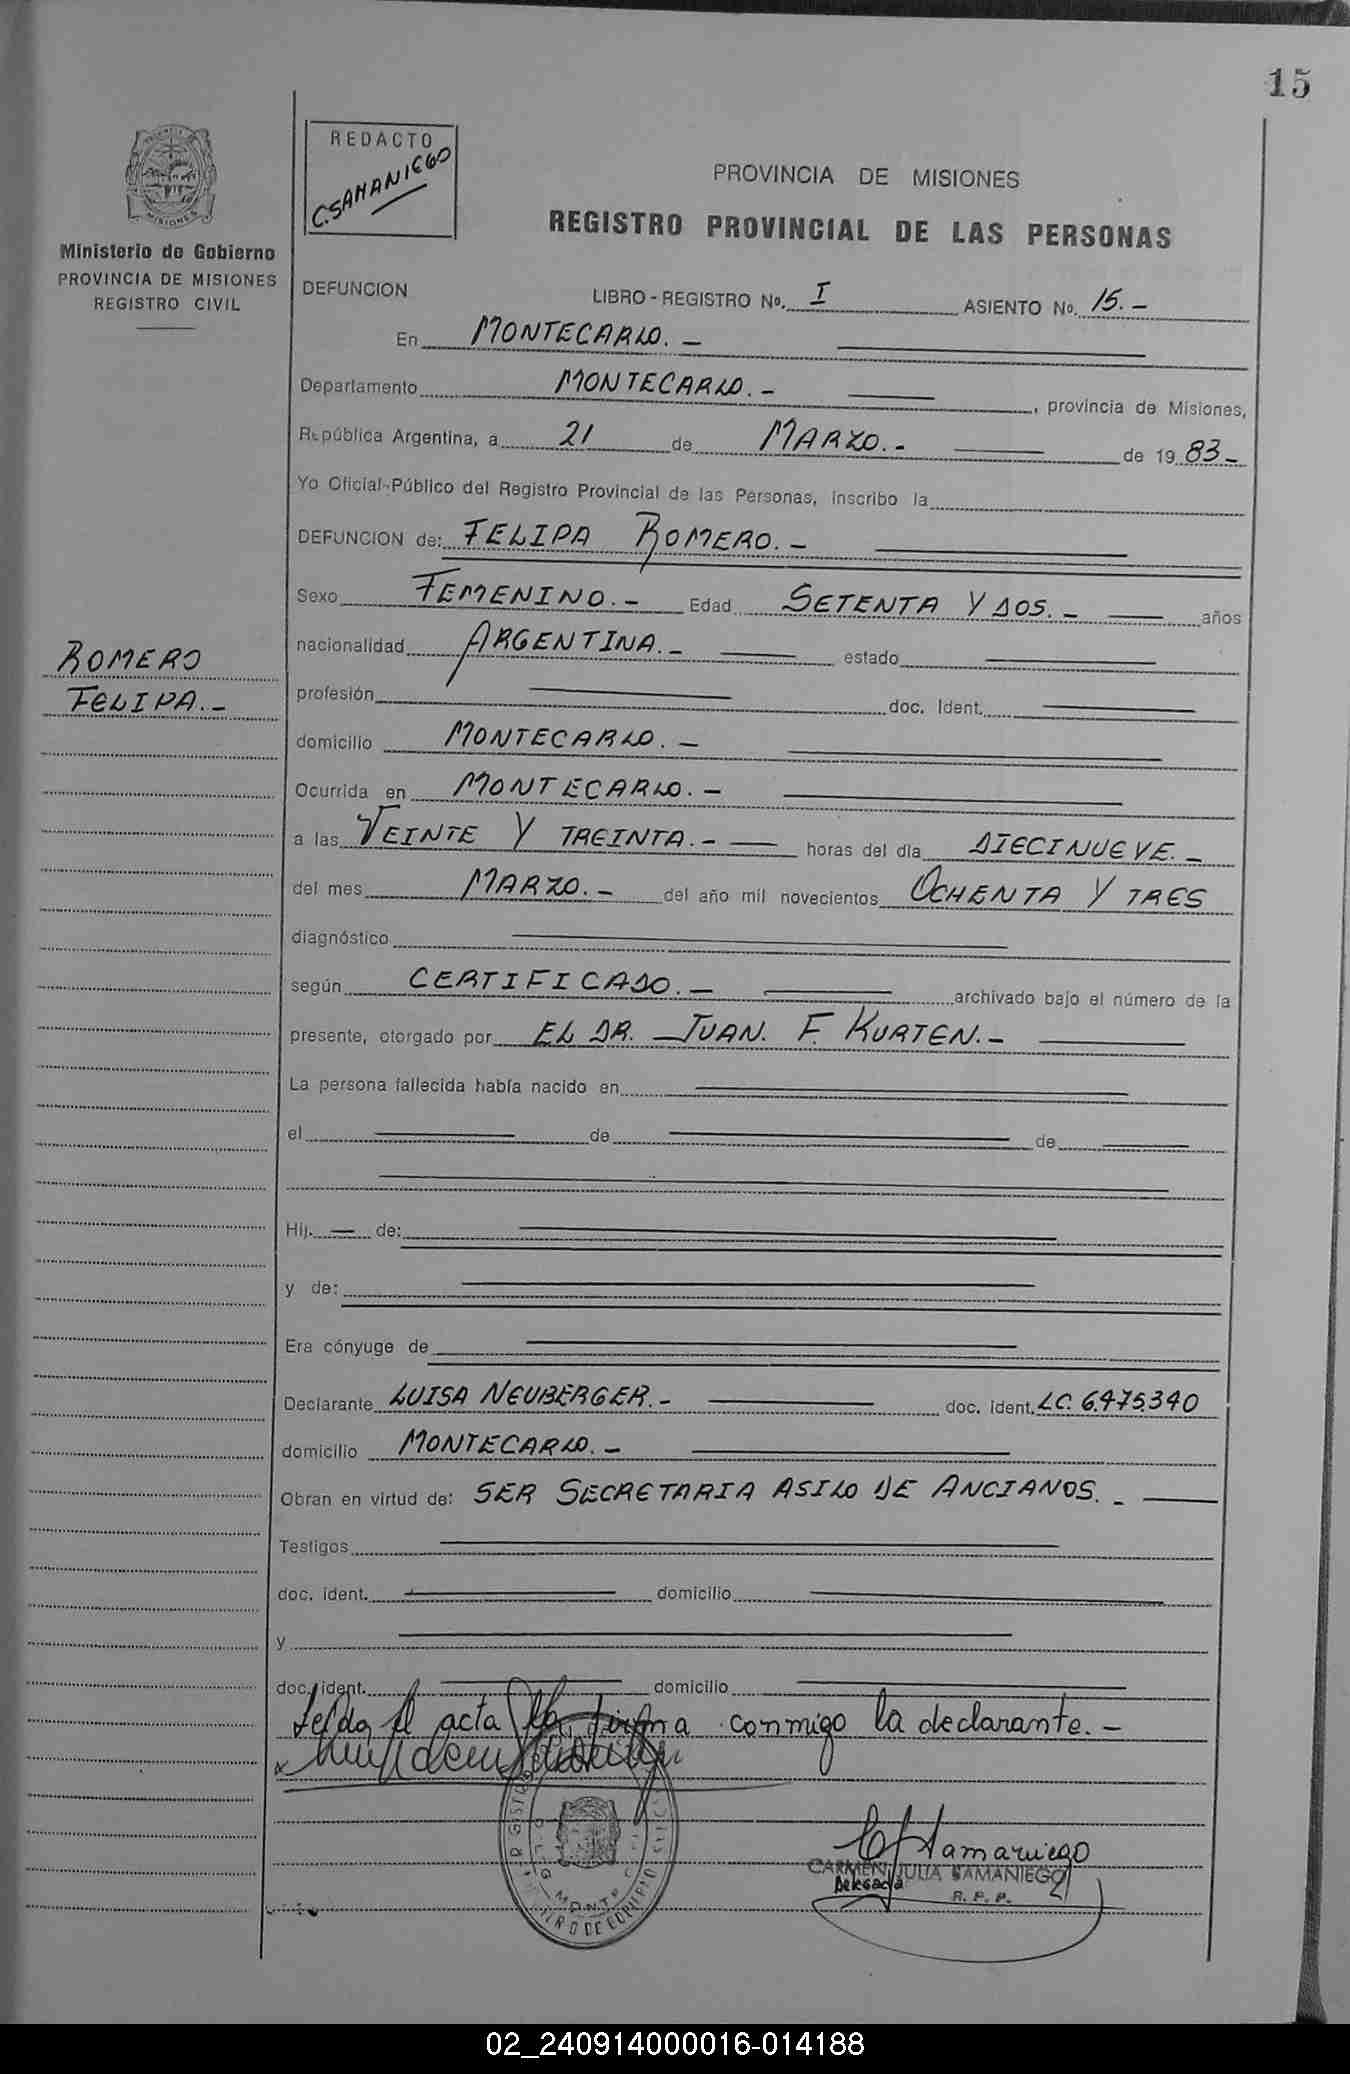 15
REDACTO
C. SAMANIEGO
PROVINCIA DE MISIONES
REGISTRO PROVINCIAL DE LAS PERSONAS
MISIONES
Ministerio de Gobierno
PROVINCIA DE MISIONES
REGISTRO CIVIL
DEFUNCION LIBRO - REGISTRO No. I ASIENTO No. 15. -
En MONTECARLO. -
Departamento MONTECARLO. - , provincia de Misiones,
República Argentina, a 21 de MARZO. - de 19 83 -
Yo Oficial Público del Registro Provincial de las Personas, inscribo la
DEFUNCION de: FELIPA ROMERO. -
Sexo FEMENINO. - Edad SETENTA Y DOS. - años
nacionalidad ARGENTINA. - estado
ROMERO
FELIPA. -
profesión doc. Ident.
domicilio MONTECARLO. -
Ocurrida en MONTECARLO. -
a las VEINTE Y TREINTA. - horas del día DIECINUEVE. -
del mes MARZO. - del año mil novecientos OCHENTA Y TRES
diagnóstico
según CERTIFICADO. - archivado bajo el número de la
presente, otorgado por EL DR. JUAN. F. KURTEN. -
La persona fallecida había nacido en
el de de
Hij. — de:
y de:
Era cónyuge de
Declarante LUISA NEUBERGER. - doc. ident. LC. 6.475.340
domicilio MONTECARLO. -
Obran en virtud de: SER SECRETARIA ASILO DE ANCIANOS. -
Testigos
doc. ident. domicilio
y
doc. ident. domicilio
Leída el acta la firma conmigo la declarante. -
C J Samaniego
CARMEN JULIA SAMANIEGO
Delegada
R. P. P.
02_240914000016-014188